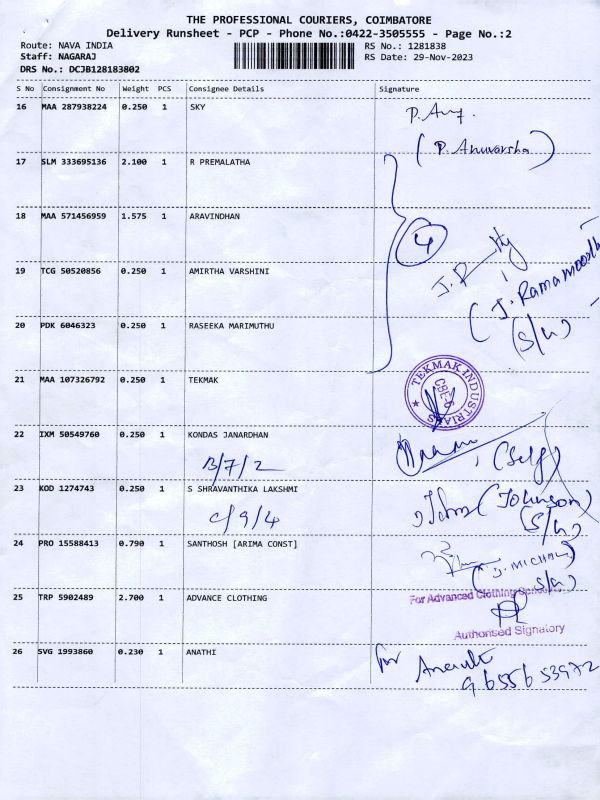 THE PROFESSIONAL COURIERS, COIMBATORE
Delivery Runsheet - PCP - Phone No.:0422-3505555 - Page No.:2
Route: NAVA INDIA RS No.: 1281838
Staff: NAGARAJ RS Date: 29-Nov-2023
DRS No.: DCJB128183802
S No Consignment No Weight PCS Consignee Details Signature
16 MAA 287938224 0.250 1 SKY
(P. Anuvarsha)
17 SLM 333695136 2.100 1 R PREMALATHA
18 MAA 571456959 1.575 1 ARAVINDHAN
4
19 TCG 50520856 0.250 1 AMIRTHA VARSHINI
(J. Ramamoorth
(S/G)
20 PDK 6046323 0.250 1 RASEEKA MARIMUTHU
21 MAA 107326792 0.250 1 TEKMAK
TEKMAK INDUSTRIES
CBE-6
22 IXM 50549760 0.250 1 KONDAS JANARDHAN
B/7/2 (Self)
23 KOD 1274743 0.250 1 S SHRAVANTHIKA LAKSHMI
C/9/4 John (Johnson)
(S/G)
24 PRO 15588413 0.790 1 SANTHOSH [ARIMA CONST]
(J. MICHAL)
S/G)
25 TRP 5902489 2.700 1 ADVANCE CLOTHING
For Advanced Clothing
Authorised Signatory
26 SVG 1993860 0.230 1 ANATHI
for
96556 53972